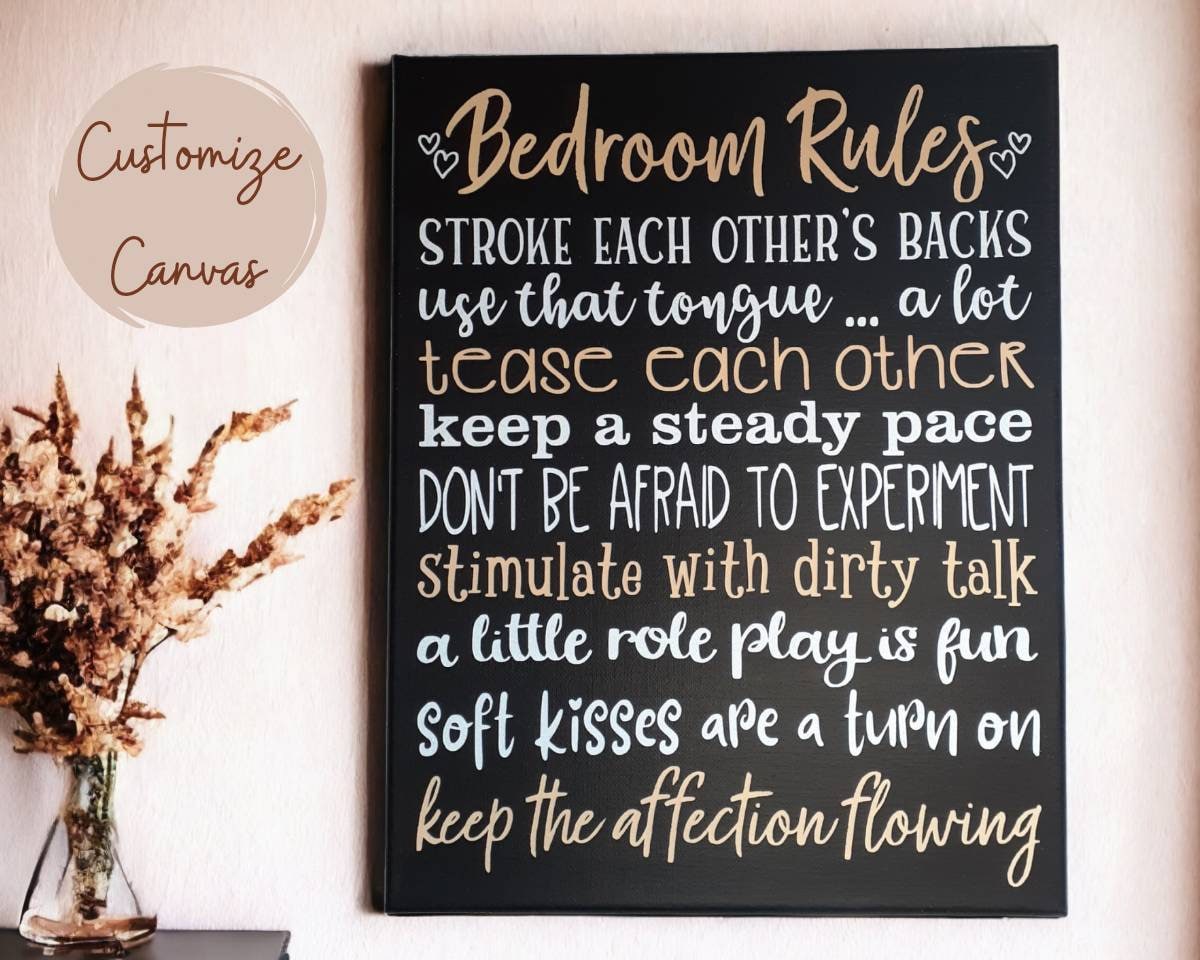 Customize
Canvas
Bedroom Rules
STROKE EACH OTHER'S BACKS
use that tongue ... a lot
tease each other
keep a steady pace
DON'T BE AFRAID TO EXPERIMENT
stimulate with dirty talk
a little role play is fun
soft kisses are a turn on
keep the affection flowing